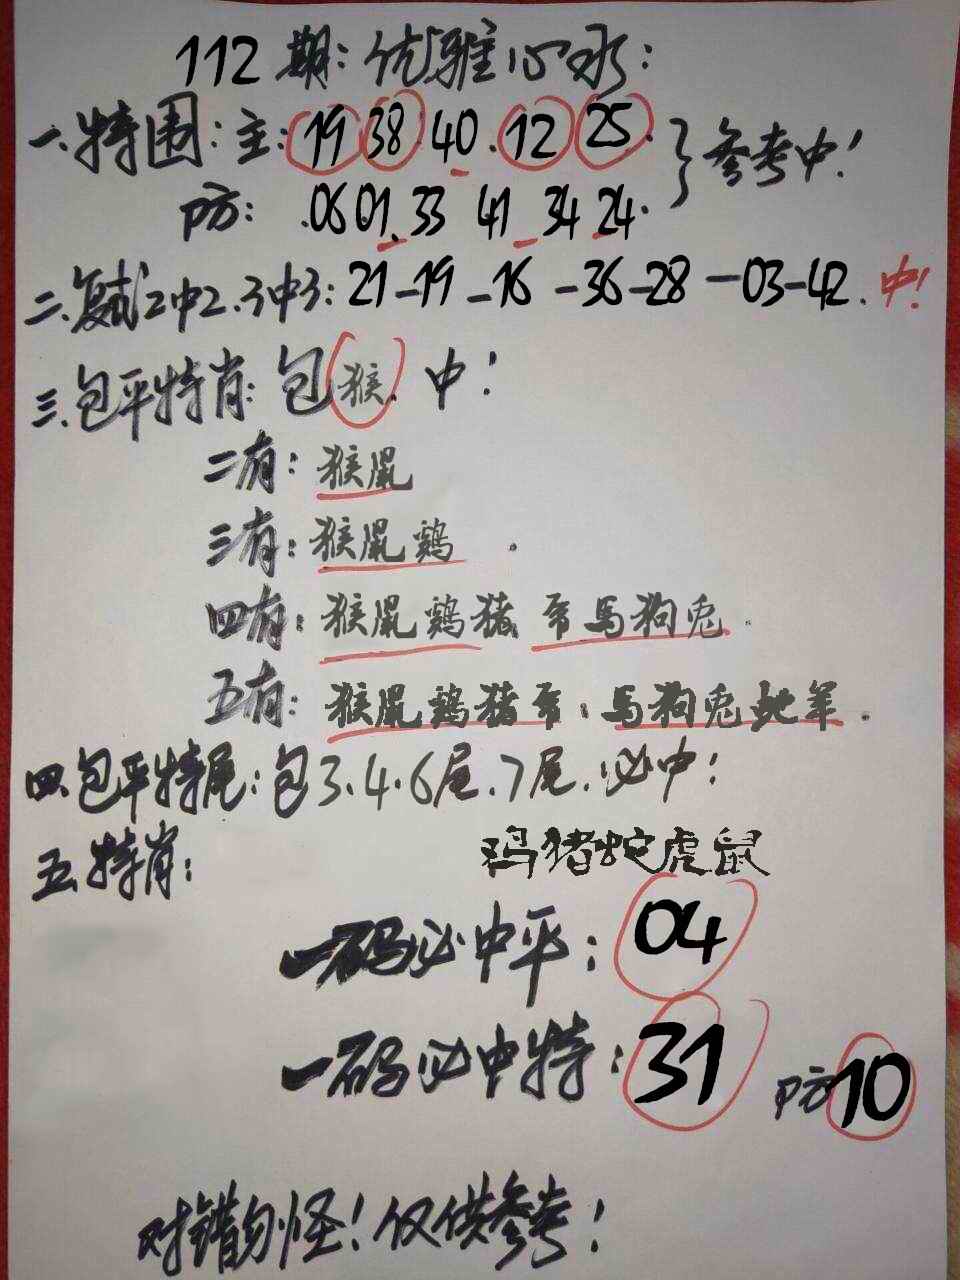 112期:优雅心水:
一.特围:主:19 38 40.12 25. 参考中!
防: .06 01.33 41 34 24.
二.复式2中2.3中3:21-19-16-36-28-03-42.中!
三.包平特肖:包猴.中!
二有:猴鼠
三有:猴鼠鷄.
四有:猴鼠鷄猪 马狗兎.
五有:猴鼠鷄猪 .马狗兎蛇羊.
四.包平特尾:包3.4.6尾.7尾.必中!
五.特肖: 猪蛇虎鼠
一码必中平:04
一码必中特:31 防10
对错勿怪!仅供参考!